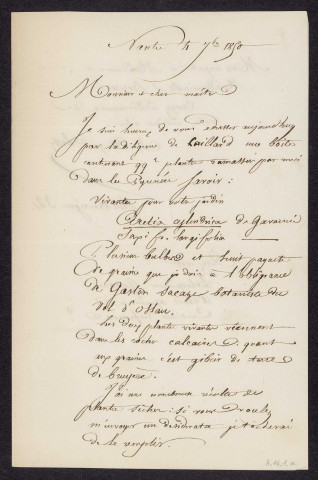 Nante 4 7bre 1850
Monsieur et cher maître
Je suis heureux de vous adresser aujourd'huy
par la diligence de Caillard une boîte
contenant qq. plante ramassée par moi
dans les Pyrénées savoir :
Vivante pour votre jardin
Aretia cylindrica de Gavarnie
Saxifr. longifolia
Plusieurs bulbes et huit paquets
de graine que je dois à l'obligeance
de Gaston Sacaze botaniste du
Val d'Ossau.
Les deux plante vivante viennent
dans les roche calcaire; quant
aux graines c'est gibier de terre
de bruyère.
J'ai une nombreuse récolte de
plante sèche : si vous voulez
m'envoyer un desiderata je tacherai
de le remplir.